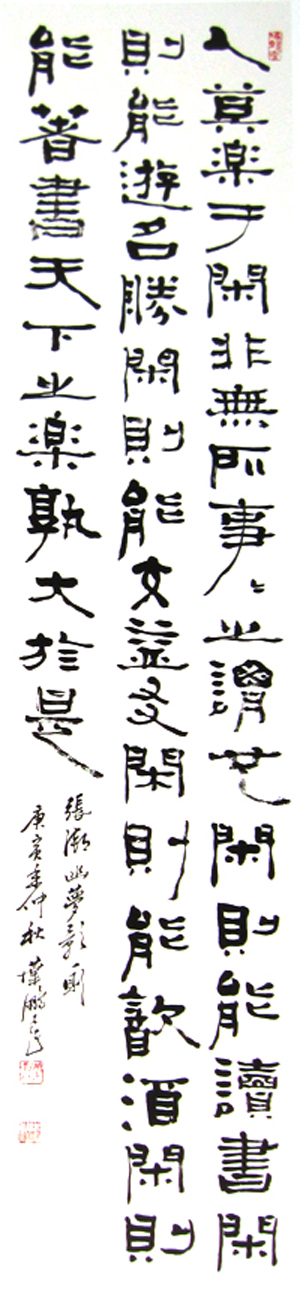 人莫楽于閑非無所事〻之謂也閑則能讀書閑
則能遊名勝閑則能交益友閑則能飲酒閑則
能著書天下之楽孰大於是
張潮幽夢影一則
庚寅年仲秋葉鵬飛